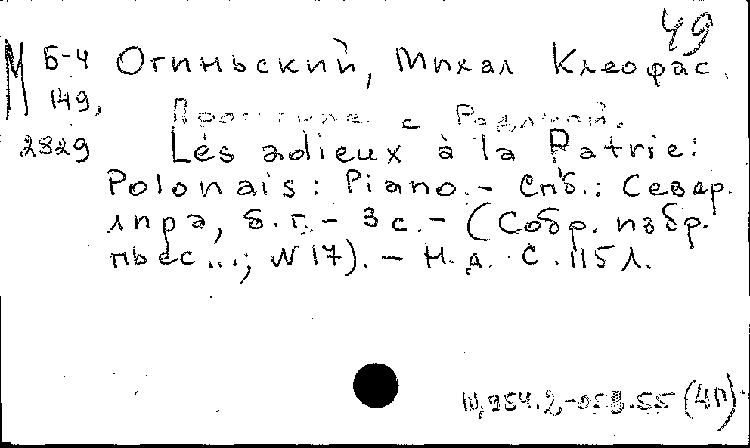 49
М Б-4 Огиньский, Михал Клеофас.
149,
Прощание с Родиной.
2829 Les adieux à la Patrie:
Polonais: Piano. - Спб.: Север.
лира, б.г. - 3 с. - (Собр. избр.
пьес...; N 17). - Н.д. С. 115 л.
(4п)